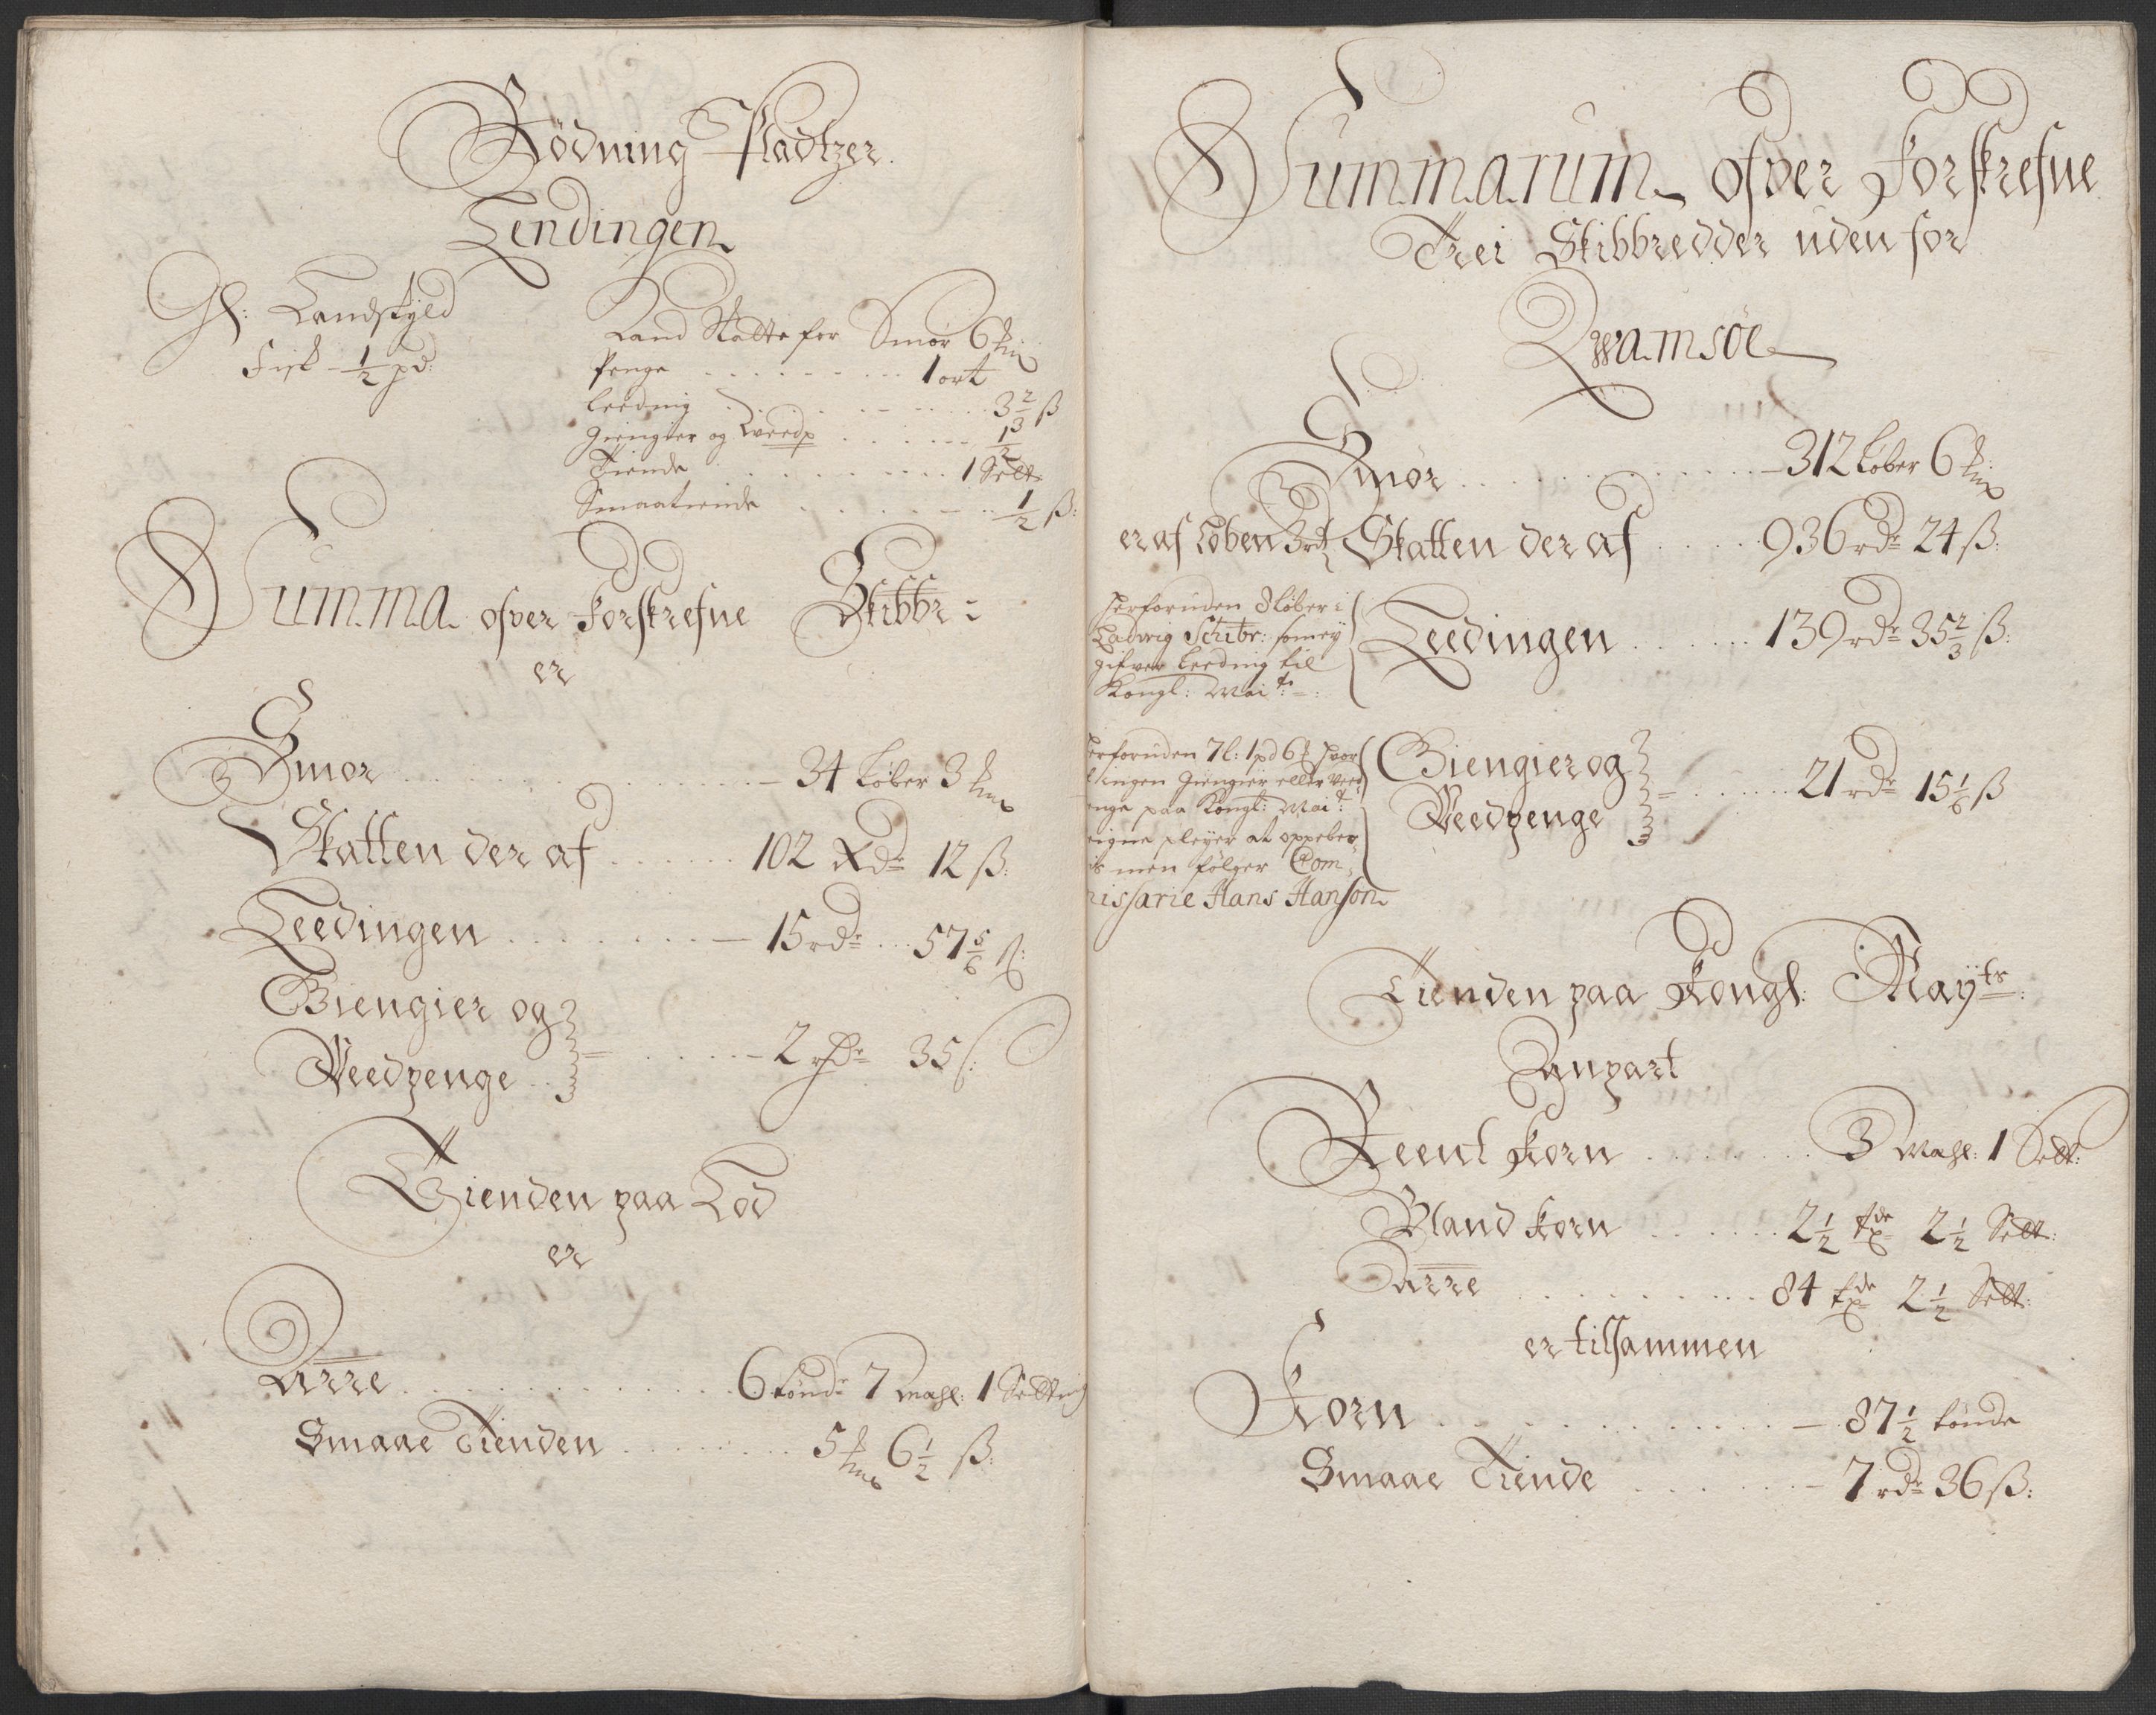 Rødning Pladtzer.
Lendingen
Gl: Landskyld
Fisk - 1/2 pd:
Land Skatte for Smør 6
Penge . . . . . . . . . 1 ort
Leeding . . . . . . . . 3 2/3 ß
Giengier og Weedp . . . . . . 1/2
Tiende . . . . . . . . . 1 Selt
Smaatiende . . . . . . . 1/2 ß:
Summa ofver Forskrefne Skibbr:
er
Smør . . . . . . . . . 34 Løber 3
Skatten der af . . . . . . 102 Rdr 12 ß:
Leedingen . . . . . . . 15 rdr . . . 57 5/6 ß:
Giengier og
Weedpenge . . . . . . . 2 rdr 35 ß:
Tienden paa Lod
er
Aure . . . . . . . . . 6 tøndr 7 mahl: 1 Setting
Smaae Tienden . . . . . . . 5 6 1/2 ß:
Summarum ofver Forskrefne
Trei Skibbredder uden for
Qwamsøe
Smør . . . . . . . . . 312 Løber 6
er af Løben 3 rd Skatten der af . . . . 936 rdr 24 ß:
herforuden 8 løber i
Ladwig Schibr: som ey
gifver Leeding til
Kongl: Maits:
Leedingen . . . . . . 139 rdr 35 2/3 ß:
herforuden 7 l: 1 pd 6 hvor
ingen Giengier eller Veed
enge paa Kongl: Mait:
eigne pleyer at oppeber
is men følger Com
missarie Hans Hanson
Giengier og
Weedpenge . . . . . . 21 rdr 15 1/6 ß
Tienden paa Kongl: Mayts:
Anpart
Reent Korn . . . . . . . 3 Mahl: 1 Sett:
Bland Korn . . . . . . 2 1/2 tde 2 1/2 Sett:
Aure . . . . . . . . . 84 tde 2 1/2 Sett:
er tilsammen
Korn . . . . . . . . . 87 1/2 tønde
Smaae Tiende . . . . . . . 7 rdr 36 ß: